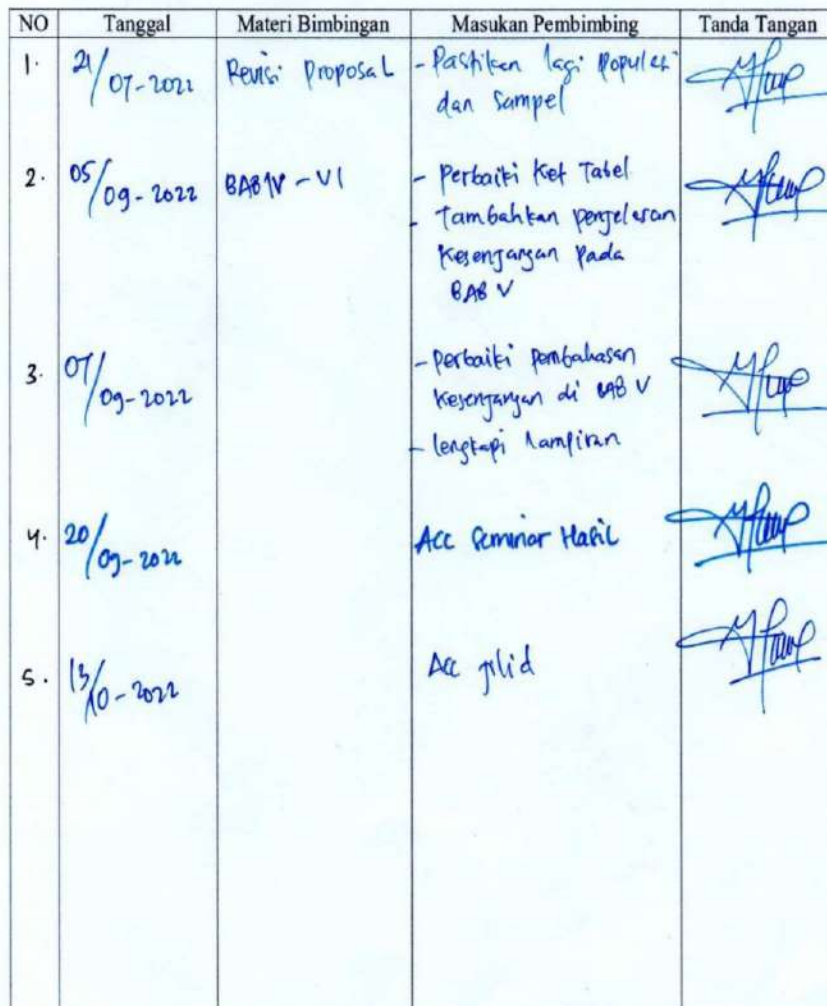 NO Tanggal Materi Bimbingan Masukan Pembimbing Tanda Tangan
1. 21/07-2022 Revisi Proposal - Pastikan lagi populasi
dan Sampel
2. 05/09-2022 BAB IV - VI - Perbaiki Ket Tabel
- Tambahkan penjelasan
Kesenjangan Pada
BAB V
3. 07/09-2022 - Perbaiki pembahasan
Kesenjangan di BAB V
- lengkapi Lampiran
4. 20/09-2022 Acc Seminar Hasil
5. 13/10-2022 Acc jilid